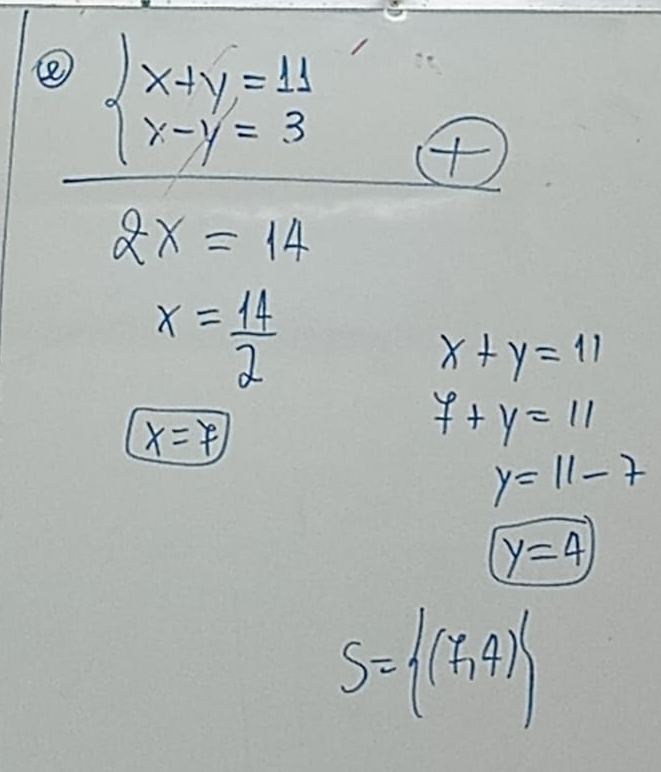 e) { x+y = 11
x-y = 3
+
2x = 14
x = 14/2
x = 7
x + y = 11
7 + y = 11
y = 11 - 7
y = 4
S = {(7,4)}